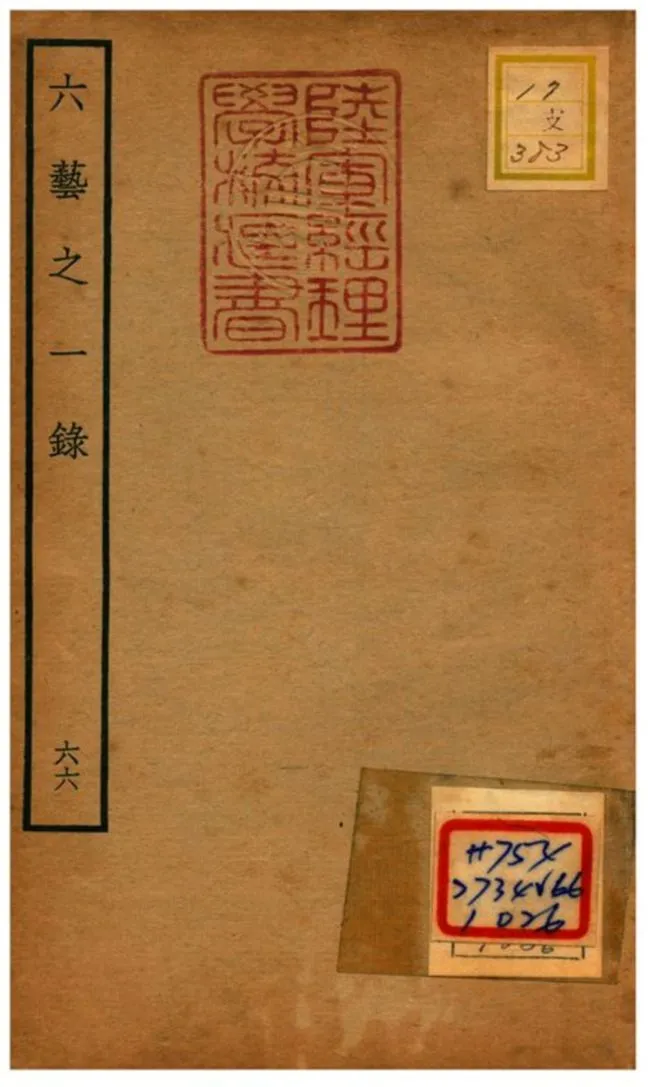 六藝之一錄
六六
陸軍經理
學校書
17
383
H754
2734v66
1026